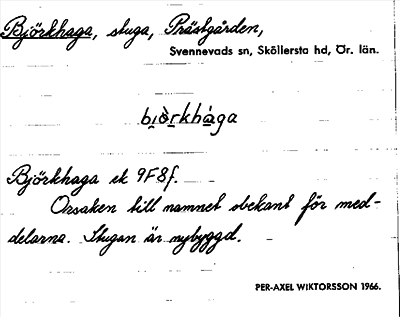 Björkhaga, stuga, Prästgården,
Svennevads sn, Sköllersta hd, Ör. län.
bi̯ò̱rkhàga
Björkhaga ek 9F8f.
Orsaken till namnet obekant för med-
delarna. Stugan är nybyggd.
PER-AXEL WIKTORSSON 1966.